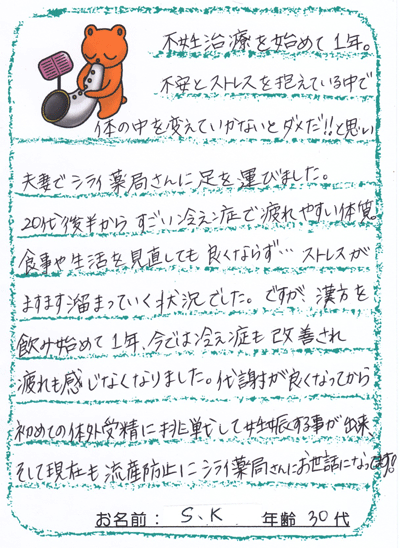 不妊治療を始めて1年。
不安とストレスを抱えている中で
体の中を変えていかないとダメだ!!と思い
夫妻でシライ薬局さんに足を運びました。
20代後半からすごい冷え症で疲れやすい体質。
食事や生活を見直しても良くならず…ストレスが
ますます溜まっていく状況でした。ですが、漢方を
飲み始めて1年、今では冷え症も改善され
疲れも感じなくなりました。代謝が良くなってから
初めての体外受精に挑戦して妊娠する事が出来、
そして現在も流産防止にシライ薬局さんにお世話になってます!!
お名前: S.K 年齢 30代